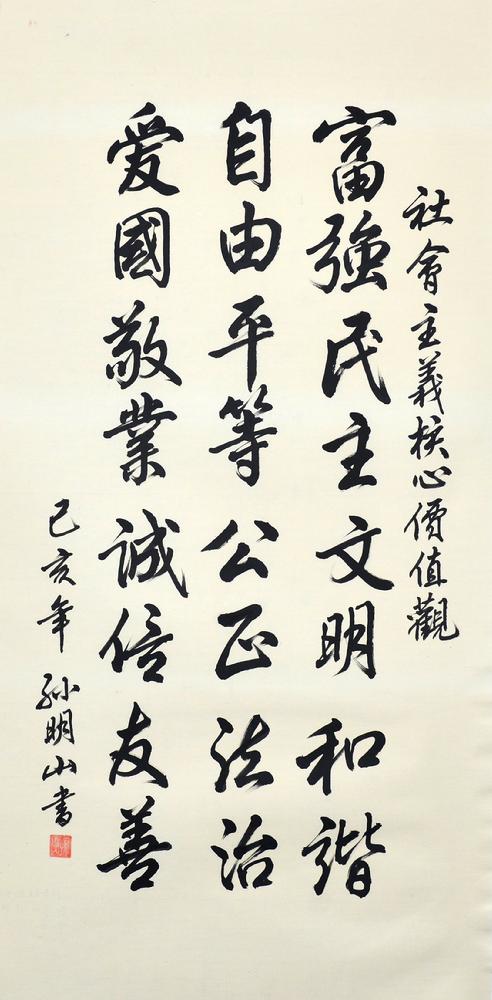 社會主義核心價值觀
富強民主文明和諧
自由平等公正法治
爱國敬業誠信友善
己亥年
孙明山書